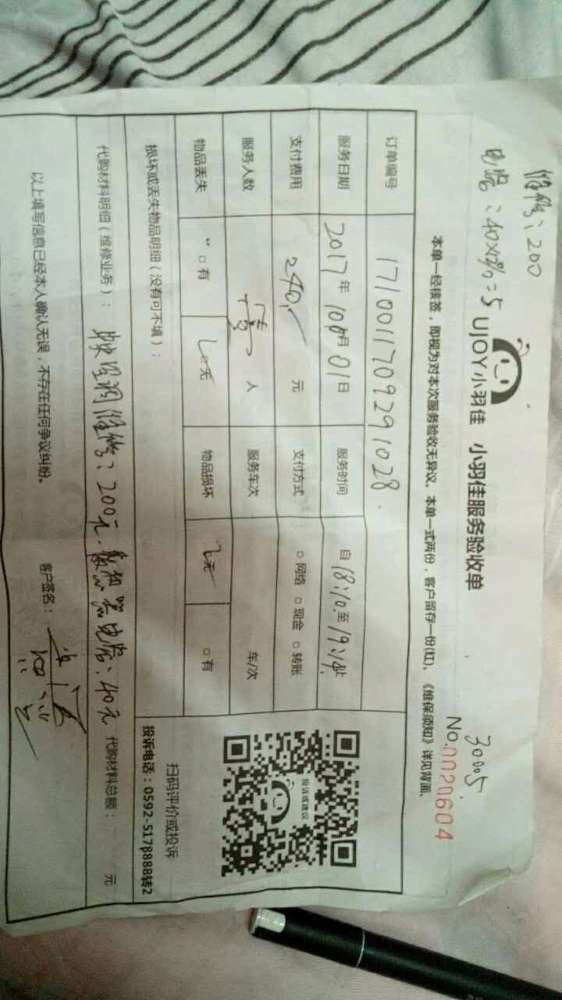 维修：200
电容：40×8%=5
30005
UJOY小羽佳 小羽佳服务验收单
No.0020604
本单一经核签，即视为对本次服务验收无异议，本单一式两份，客户留存一份(红)，《维保须知》详见背面。
订单编号 171001170929 1028
服务日期 2017年10月01日 服务时间 自18:10至19:14
支付费用 240 元 支付方式 □网络 □现金 □转账
服务人数 人 服务车次 车/次
物品丢失 □有 无 物品损坏 无 □有
损坏或丢失物品明细（没有可不填）：
代购材料明细（维修业务）： 空调维修：200元. 电容：40元 代购材料总额： 元
以上填写信息已经本人确认无误，不存在任何争议纠纷。 客户签名：
投诉或建议
扫码评价或投诉
投诉电话：0592-5178888转2